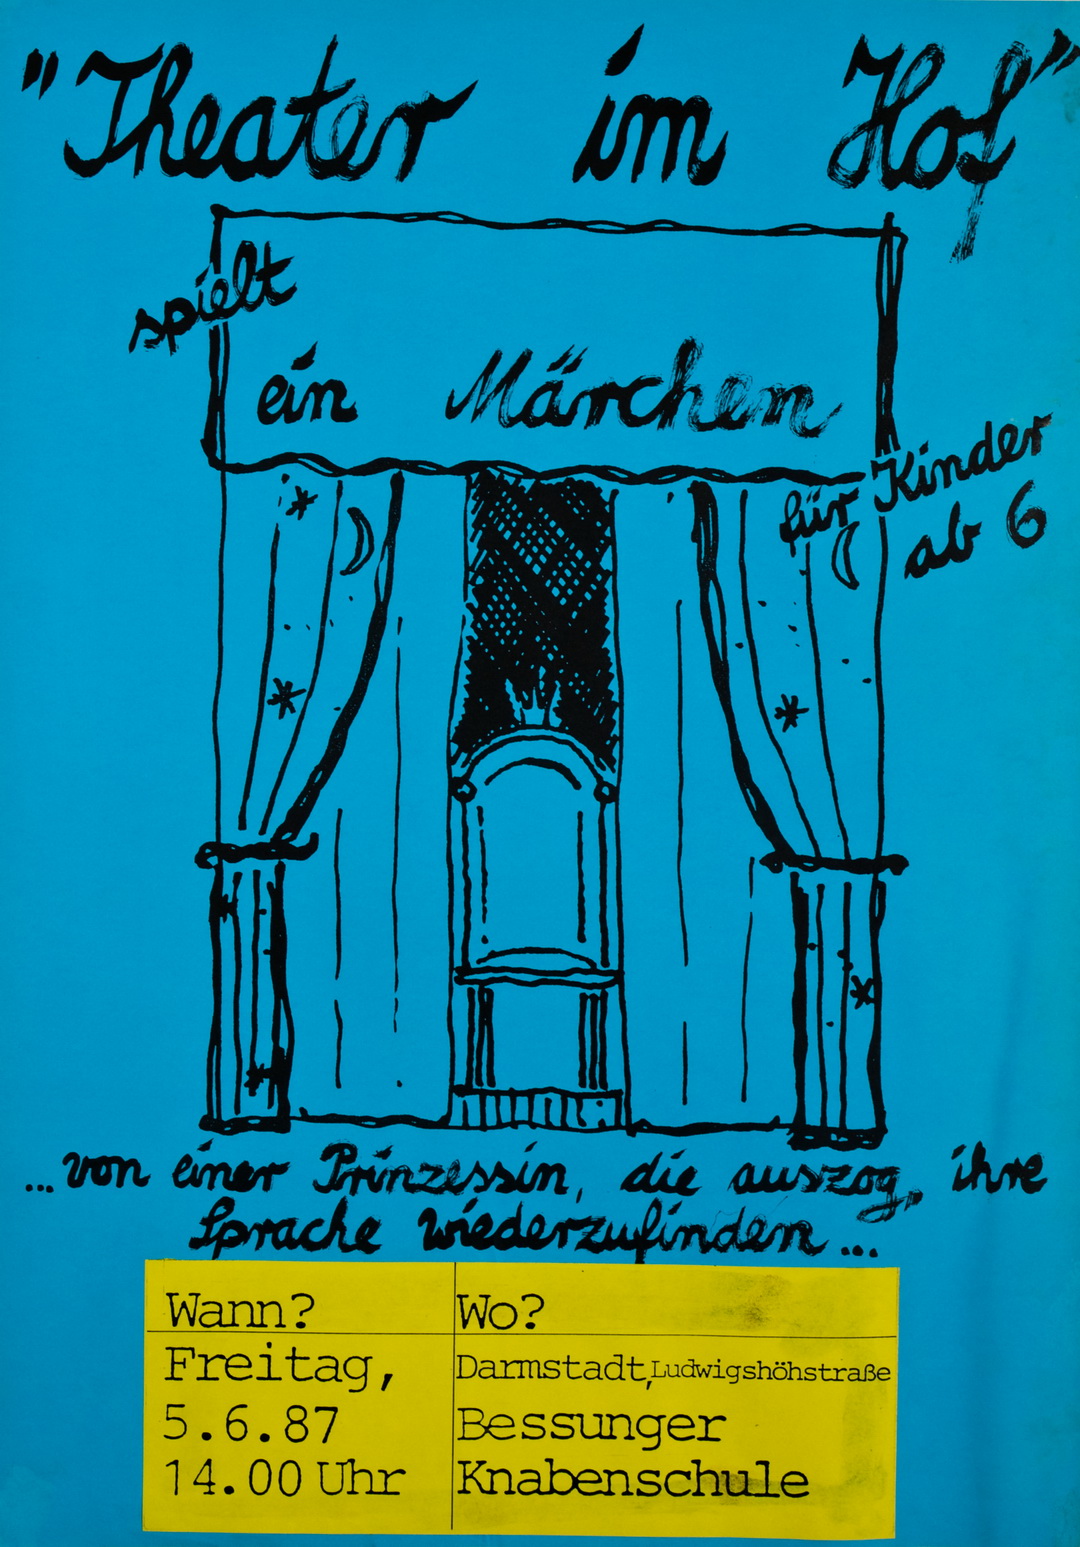 "Theater im Hof"
spielt
ein Märchen
für Kinder
ab 6
...von einer Prinzessin, die auszog, ihre
Sprache wiederzufinden...
Wann?
Freitag,
5.6.87
14.00 Uhr
Wo?
Darmstadt, Ludwigshöhstraße
Bessunger
Knabenschule